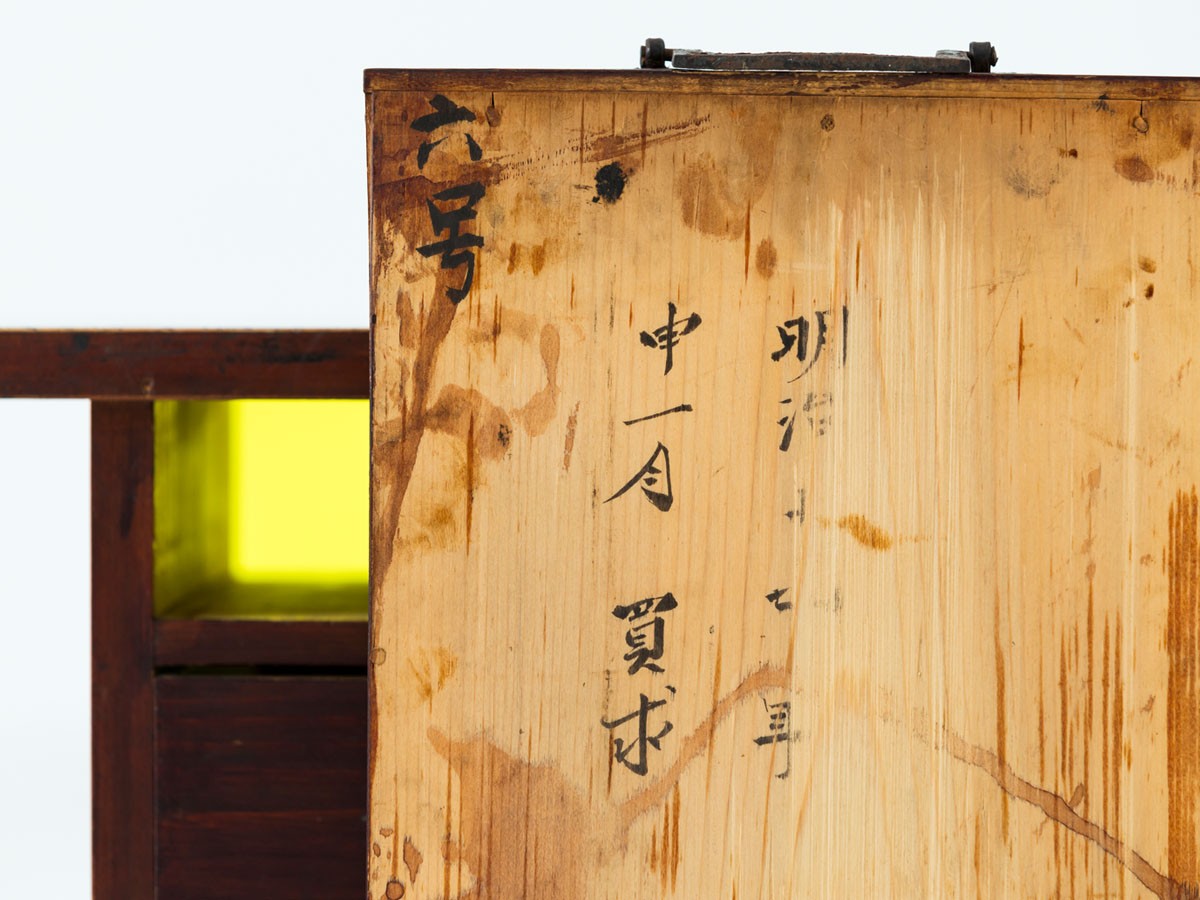 明治十七年
申一月 買求
六号